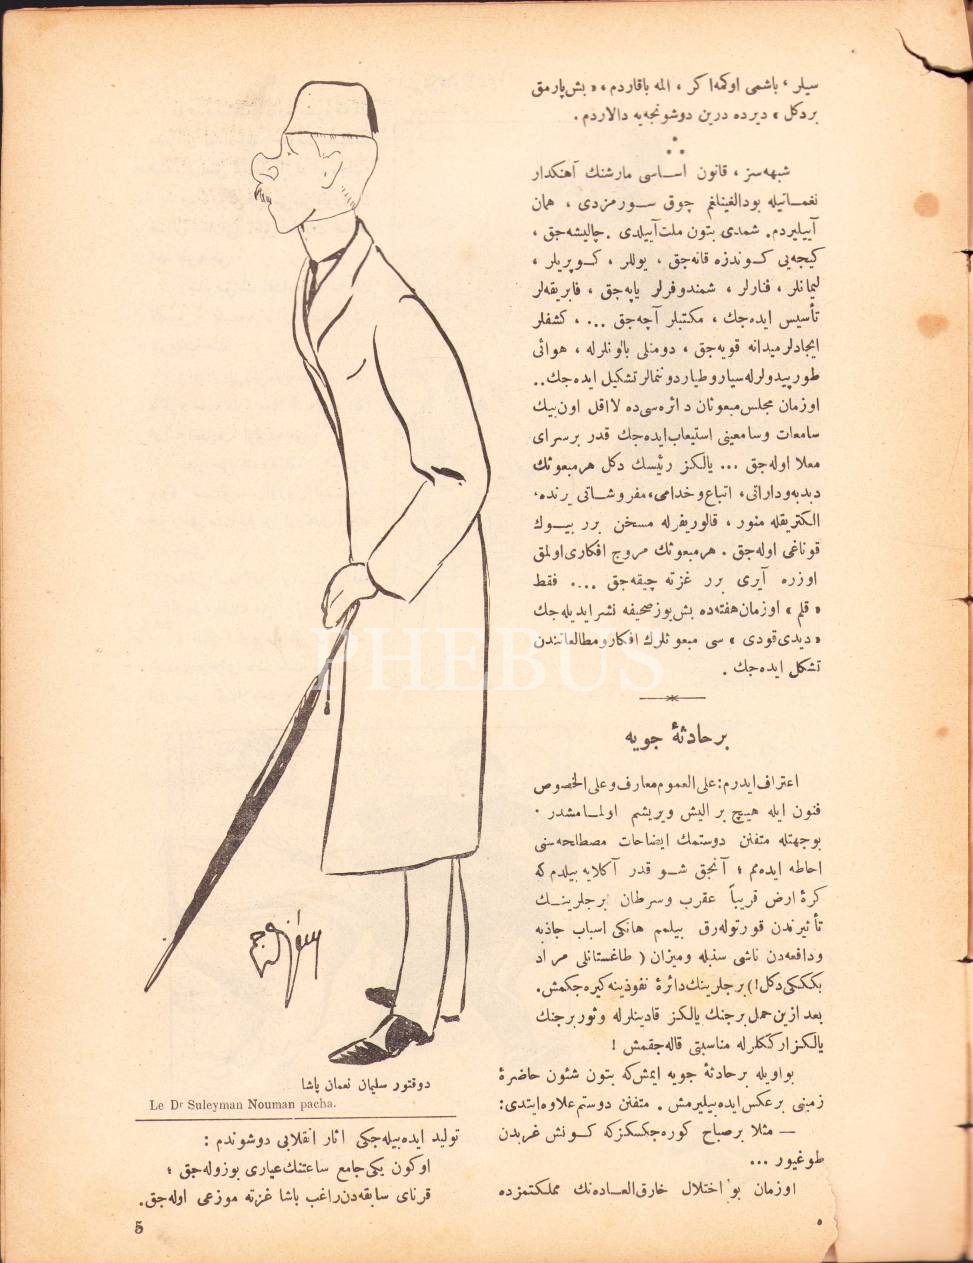 سيلر ، باشمى اوكمه‌اكر ، المه باقاردم ، « بش پارمق
بردكل » ديرده درين دوشونجه‌يه دالاردم .
شبهه‌سز ، قانون اساسى مارشنك آهنكدار
نغماتيله بودالغينلغم چوق سورمزدى ، همان
آييليردم. شمدى بتون ملت آييلدى . چاليشه‌جق ،
كيجه‌يى كوندزه قاته‌جق ، يوللر ، كوپريلر ،
ليمانلر ، فنارلر ، شمندوفرلر ياپه‌جق ، فابريقه‌لر
تأسيس ايده‌جك ، مكتبلر آچه‌جق ... ، كشفلر
ايجادلر ميدانه قويه‌جق ، دومنلى بالونلرله ، هوائى
طورپيدولرله سيار و طيار دوننمالر تشكيل ايده‌جك..
اوزمان مجلس مبعوثان دائره‌سى‌ده لااقل اون بيك
سامعات وسامعينى استيعاب ايده‌جك قدر برسراى
معلا اوله‌جق ... يالكز رئيسك دكل هرمبعوثك
دبدبه وداراتى، اتباع وخدامى، مفروشاتى يرنده،
الكتريقله منور ، قالوريفرله مسخن برر بيوك
قوناغى اوله‌جق . هرمبعوثك مروج افكارى اولمق
اوزره آيرى برر غزته چيقه‌جق .... فقط
« قلم » اوزمان هفته‌ده بش‌يوز صحيفه نشر ايديله‌جك
« ديدى قودى » سى مبعوثلرك افكار و مطالعاتندن
تشكل ايده‌جك .
بر حادثهٔ جويه
اعتراف ايدرم : على العموم معارف وعلى الخصوص
فنون ايله هيچ بر اليش ويريشم اولمامشدر .
بوجهتله متفنن دوستمك ايضاحات مصطلحه‌سنى
احاطه ايده‌مم ؛ آنجق شو قدر آكلايه بيلدم كه
كرهٔ ارض قريباً عقرب وسرطان برجلرينك
تأثيرندن قورتوله‌رق بيلمم هانكى اسباب جاذبه
ودافعه‌دن ناشى سنبله وميزان ( طاغستانلى مراد
بككى دكل!) برجلرينك دائرهٔ نفوذينه كيره‌جكمش.
بعد ازين حمل برجنك يالكز قادينلرله وثور برجنك
يالكز ارككلرله مناسبتى قاله‌جقمش !
بواويله برحادثهٔ جويه ايمش كه بتون شئون حاضرهٔ
زمينى برعكس ايده‌بيليرمش . متفنن دوستم علاوه ايتدى:
— مثلا برصباح كوره‌جكسكز كه كونش غربدن
طوغيور ...
اوزمان بو اختلال خارق العاده‌نك مملكتمزده
دوقتور سليمان نعمان پاشا
Le Dr Suleyman Nouman pacha.
توليد ايده‌بيله‌جكى آثار انقلابى دوشوندم :
اوكون يكى جامع ساعتنك عيارى بوزوله‌جق ؛
قرناى سابقه‌دن راغب پاشا غزته موزعى اوله‌جق.
5
٥
PHEBUS